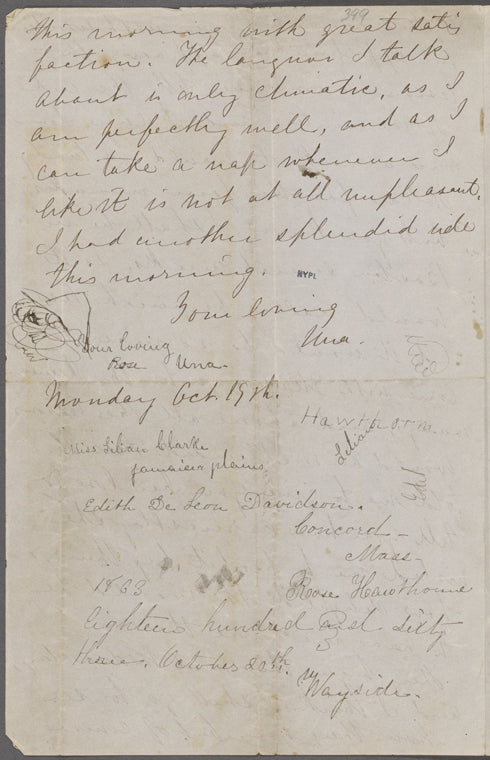 399
this morning with great satis
faction. The languor I talk
about is only climatic, as I
am perfectly well, and as I
can take a nap whenever I
like it is not at all unpleasant.
I had another splendid ride
this morning.
NYPL
Your loving
Una.
Your loving
Rose Una.
Monday Oct. 19th.
Hawthorne
Lilian
Miss Lilian Clarke
Jamaica plains,
Edith De Leon Davidson.
Concord -
Mass -
1863
Rose Hawthorne
Eighteen hundred and sixty
three. October 20th
Wayside.